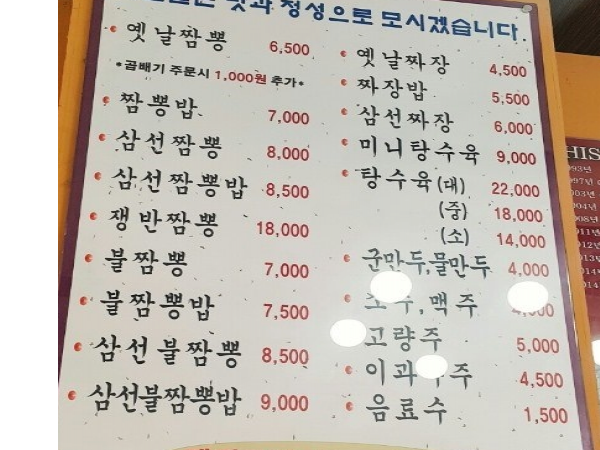 맛과 정성으로 모시겠습니다.
옛날짬뽕 6,500
*곱배기 주문시 1,000원 추가*
짬뽕밥 7,000
삼선짬뽕 8,000
삼선짬뽕밥 8,500
쟁반짬뽕 18,000
불짬뽕 7,000
불짬뽕밥 7,500
삼선불짬뽕 8,500
삼선불짬뽕밥 9,000
옛날짜장 4,500
짜장밥 5,500
삼선짜장 6,000
미니탕수육 9,000
탕수육(대) 22,000
(중) 18,000
(소) 14,000
군만두,물만두 4,000
맥주
고량주 5,000
이과 주 4,500
음료수 1,500
HIS